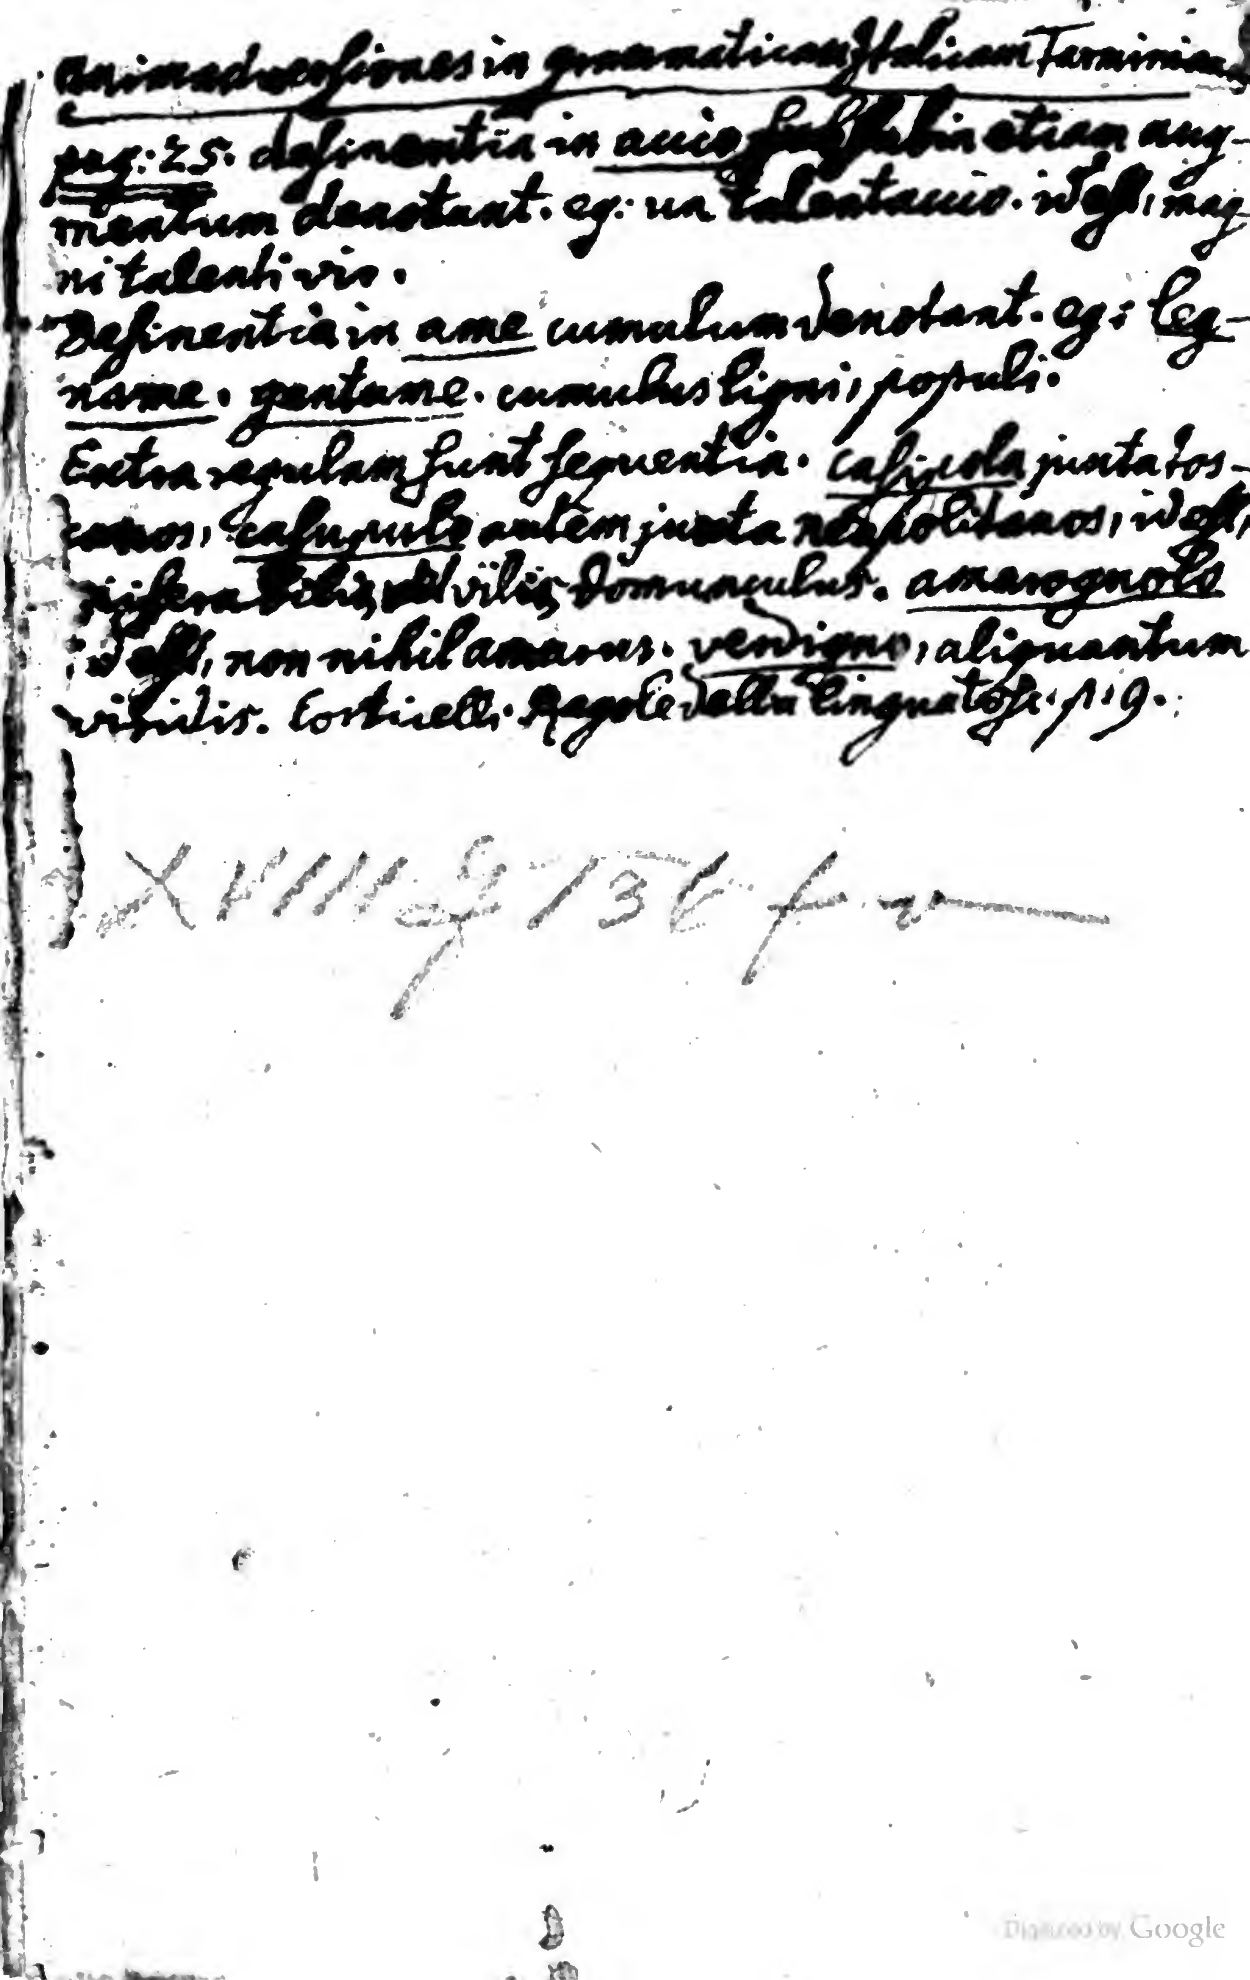 Animadversiones in grammaticam Italicam
pag: 25. desinentia in accio etiam aug-
mentum denotant. eg: un talentaccio. id est, mag-
ni talenti vir.
Desinentia in ame cumulum denotant. eg: leg-
name. gentame. cumulus ligni, populi.
Extra regulam sunt sequentia. casipola juxta tos-
canos, casupula autem juxta neapolitanos, id est,
miserabilis, vel vilis domunculus. amarognolo
id est, non nihil amarus. verdigno, aliquantum
viridis. Corticelli. Regole della lingua tosc. p. 9.
XVIII
Digitized by Google